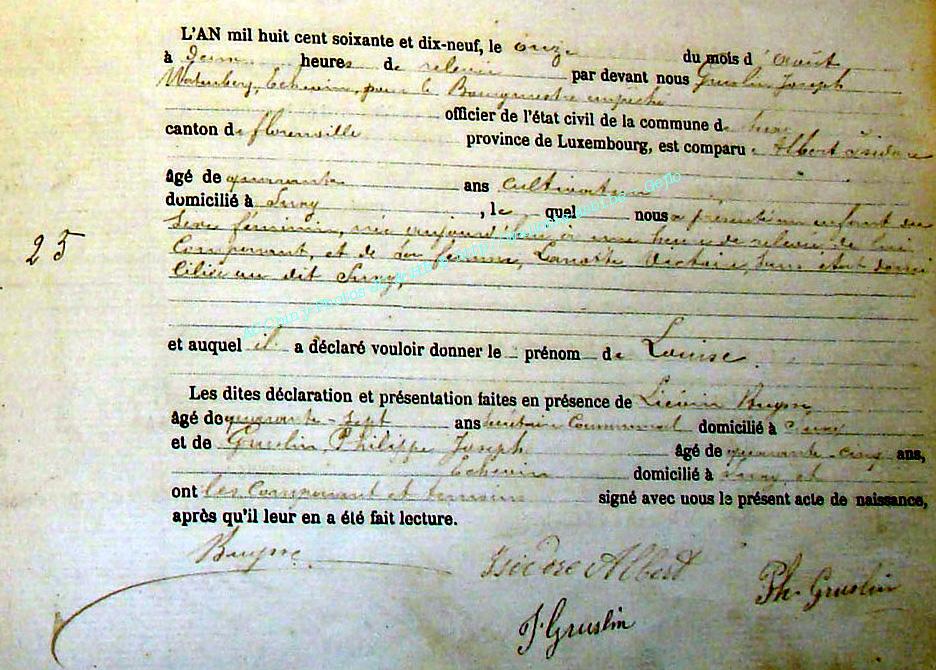 L'AN mil huit cent soixante et dix-neuf, le onze du mois d'Août
à deux heures de relevée par devant nous Gruslin Joseph
Echevin, pour le Bourgmestre empêché
officier de l'état civil de la commune de
canton de florenville province de Luxembourg, est comparu Albert Isidore
âgé de quarante ans cultivateur
domicilié à Suxy, le quel nous a présenté un enfant du
Sexe féminin, née aujourd'hui à une heure de relevée, de lui
Comparant, et de sa femme, Victoire, domi
cilié au dit Suxy,
25
et auquel il a déclaré vouloir donner le prénom de Louise
Les dites déclaration et présentation faites en présence de
âgé de quarante-sept ans Communal domicilié à Suxy
et de Gruslin Philippe Joseph âgé de quarante-cinq ans,
Echevin domicilié à Suxy et
ont les Comparant et témoins signé avec nous le présent acte de naissance,
après qu'il leur en a été fait lecture.
Isidore Albert
Ph. Gruslin
J. Gruslin